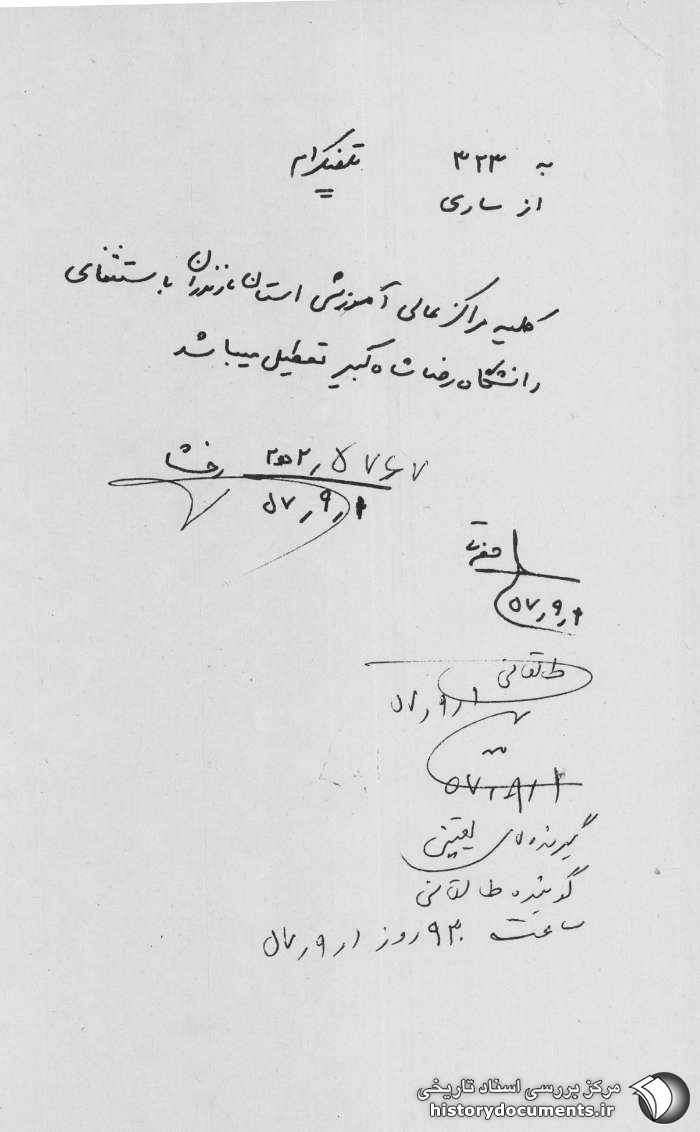 به ۳۲۳ تلفنگرام
از ساری
کلیه مراکز عالی آموزشی استان مازندران باستثنای
دانشگاه رضا شاه کبیر تعطیل میباشد
۵۷۶۷
رخشا
۵۷٫۹٫۱
۵۷٫۹٫۱
طالقانی
۵۷٫۹٫۱
گیرنده یقینی
گوینده طالقانی
ساعت ۹۳۰ روز ۵۷٫۹٫۱
مرکز بررسی اسناد تاریخی
historydocuments.ir